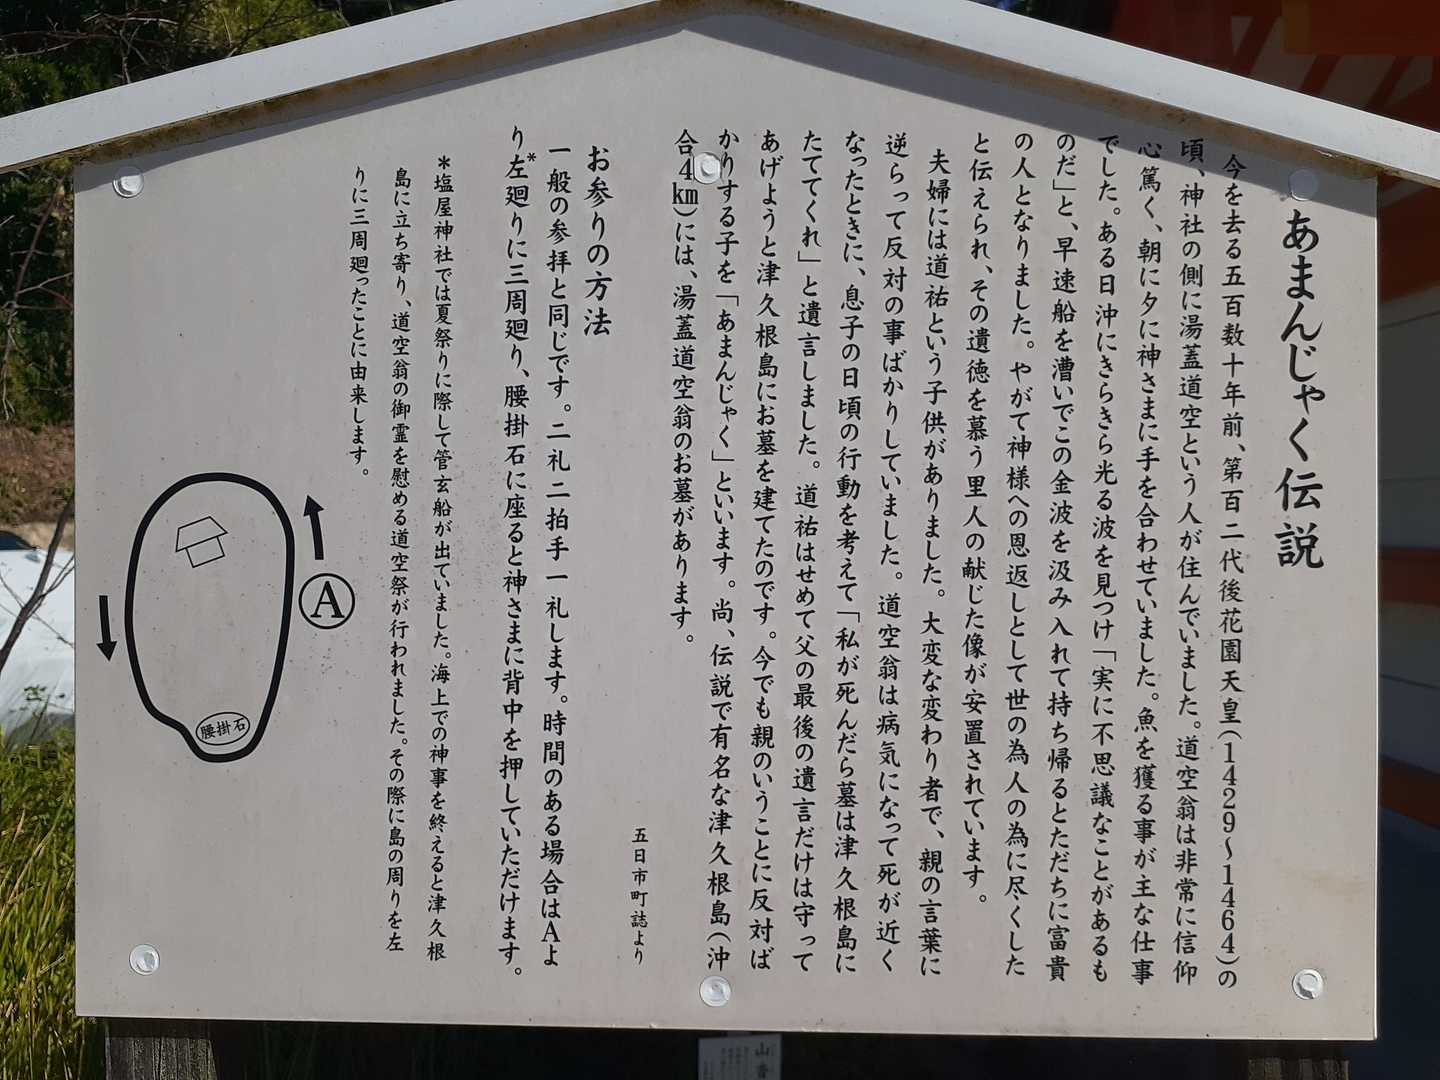 あまんじゃく伝説
今を去る五百数十年前、第百二代後花園天皇(1429〜1464)の
頃、神社の側に湯蓋道空という人が住んでいました。道空翁は非常に信仰
心篤く、朝に夕に神さまに手を合わせていました。魚を獲る事が主な仕事
でした。ある日沖にきらきら光る波を見つけ「実に不思議なことがあるも
のだ」と、早速船を漕いでこの金波を汲み入れて持ち帰るとただちに富貴
の人となりました。やがて神様への恩返しとして世の為人の為に尽くした
と伝えられ、その遺徳を慕う里人の献じた像が安置されています。
夫婦には道祐という子供がありました。大変な変わり者で、親の言葉に
逆らって反対の事ばかりしていました。道空翁は病気になって死が近く
なったときに、息子の日頃の行動を考えて「私が死んだら墓は津久根島に
たててくれ」と遺言しました。道祐はせめて父の最後の遺言だけは守って
あげようと津久根島にお墓を建てたのです。今でも親のいうことに反対ば
かりする子を「あまんじゃく」といいます。尚、伝説で有名な津久根島(沖
合4km)には、湯蓋道空翁のお墓があります。
五日市町誌より
お参りの方法
一般の参拝と同じです。二礼二拍手一礼します。時間のある場合はAよ
り*左廻りに三周廻り、腰掛石に座ると神さまに背中を押していただけます。
*塩屋神社では夏祭りに際して管玄船が出ていました。海上での神事を終えると津久根
島に立ち寄り、道空翁の御霊を慰める道空祭が行われました。その際に島の周りを左
りに三周廻ったことに由来します。
A
腰掛石